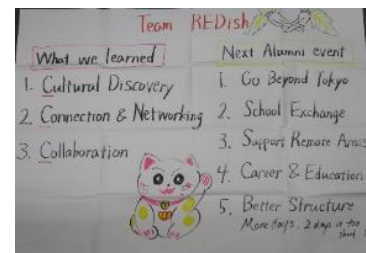 Team REDish
What we learned
1. Cultural Discovery
2. Connection & Networking
3. Collaboration
Next Alumni event
1. Go Beyond Tokyo
2. School Exchange
3. Support Remote Areas
4. Career & Education
5. Better Structure
More days. 2 day is too short.